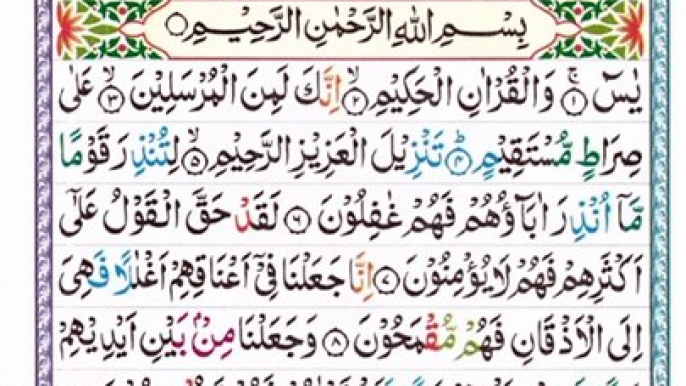 بِسْمِ اللهِ الرَّحْمٰنِ الرَّحِيْمِ
يٰسٓ ۚ﴿۱﴾ وَالْقُرْاٰنِ الْحَكِيْمِ ۙ﴿۲﴾ اِنَّكَ لَمِنَ الْمُرْسَلِيْنَ ۙ﴿۳﴾ عَلٰى
صِرَاطٍ مُّسْتَقِيْمٍ ؕ﴿۴﴾ تَنْزِيْلَ الْعَزِيْزِ الرَّحِيْمِ ۙ﴿۵﴾ لِتُنْذِرَ قَوْمًا
مَّاۤ اُنْذِرَ اٰبَآؤُهُمْ فَهُمْ غٰفِلُوْنَ ﴿۶﴾ لَقَدْ حَقَّ الْقَوْلُ عَلٰٓى
اَكْثَرِهِمْ فَهُمْ لَا يُؤْمِنُوْنَ ﴿۷﴾ اِنَّا جَعَلْنَا فِيْۤ اَعْنَاقِهِمْ اَغْلٰلًا فَهِىَ
اِلَى الْاَذْقَانِ فَهُمْ مُّقْمَحُوْنَ ﴿۸﴾ وَجَعَلْنَا مِنْۢ بَيْنِ اَيْدِيْهِمْ